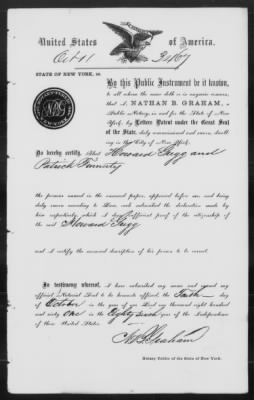 United States of America.
Oct 11
STATE OF NEW YORK, ss.
By this Public Instrument be it known,
to all whom the same doth or in anywise concern,
that I, NATHAN B. GRAHAM, a
Public Notary, in and for the State of New
York, by Letters Patent under the Great Seal
of the State, duly commissioned and sworn, dwell-
ing in the City of New York,
Do hereby certify, that Howard Grigg and
Patrick Finnerty
the persons named in the annexed paper, appeared before me, and being
duly sworn according to Law, each subscribed the declaration made by
him respectively, which I deem sufficient proof of the citizenship of
the said Howard Grigg
and I certify the annexed description of his person to be correct.
In testimony whereof, I have subscribed my name and caused my
official Notarial Seal to be hereunto affixed, the Tenth day
of October in the year of our Lord one thousand eight hundred
and sixty one in the Eighty sixth year of the Independence
of these United States.
N B Graham
Notary Public of the State of New York.